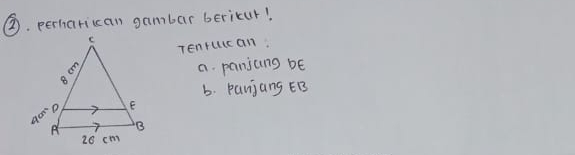 ②. Perhatikan gambar berikut!
C
Tentukan :
8 cm
a. panjang DE
b. Panjang EB
4cm
D
E
A
B
20 cm